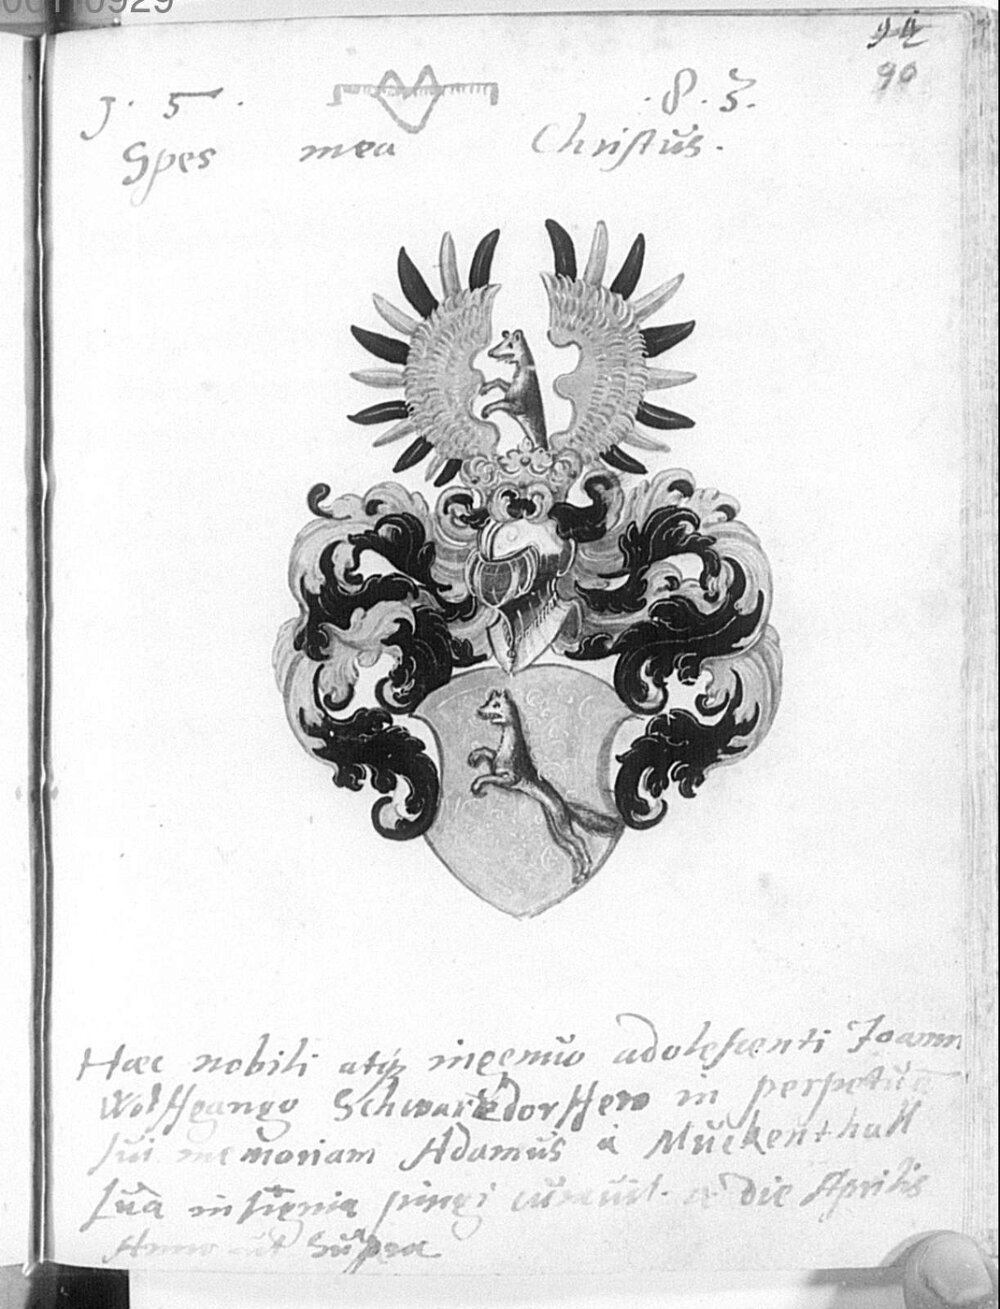 0010929
94
90
1. 5. .8. 3.
Spes mea Christus.
Haec nobili atq₃ ingenuo adolescenti Joann
Wolffgango Schwartzdorffero in perpetuā
sui memoriam Adamus à Muckenthall
sua insignia pingi curauit. die Aprilis
Anno ut supra